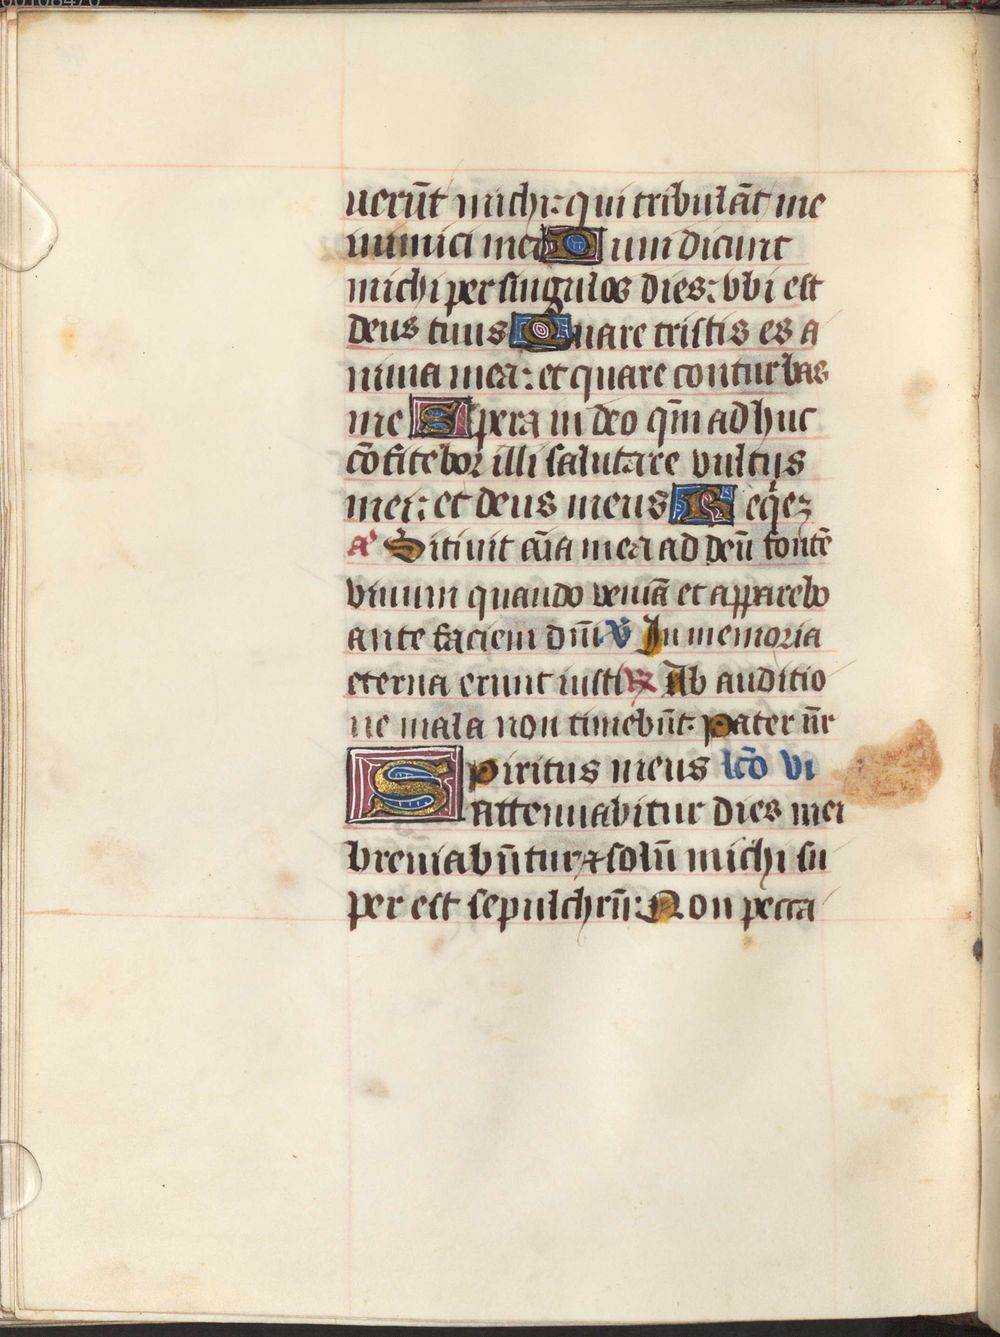 uerūt michi: qui tribulāt me
inimici mei Dum dicunt
michi per singulos dies: vbi est
deus tuus Quare tristis es a
nima mea: et quare conturbas
me Spera in deo qm̄ adhuc
cōfitebor illi salutare vultus
mei: et deus meus Reqez
a' Sitiuit aīa mea ad deū fontē
viuum quando veniā et apparebo
ante faciem dn̄i v̄ In memoria
eterna erunt iusti ꝶ Ab auditio
ne mala non timebūt. pater nr̄
Spiritus meus lcō vi
attenuabitur dies mei
breuiabūtur ⁊ solū michi su
per est sepulchrū: Non pecca